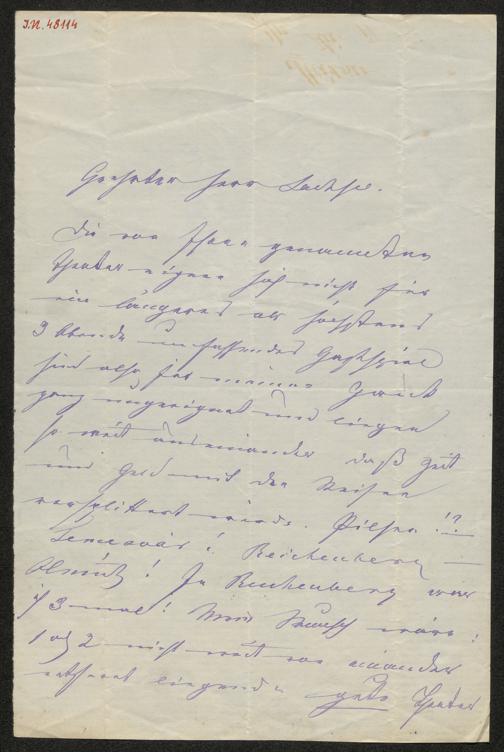 I.N. 48114
Geehrter Herr Sachse.
Die von Ihnen genannten
Theater eignen sich nicht für
ein längeres als höchstens
3 Abende umfassendes Gastspiel
sind also für meinen Zweck
ganz ungeeignet und liegen
so weit auseinander daß Zeit
und Geld mit den Reisen
versplittert würde. Pilsen!?
Temesvár! Reichenberg –
Olmütz! In Reichenberg war
ich 3 mal! Mein Wunsch wäre:
1 od 2 nicht weit von einander
entfernt liegende gute Theater